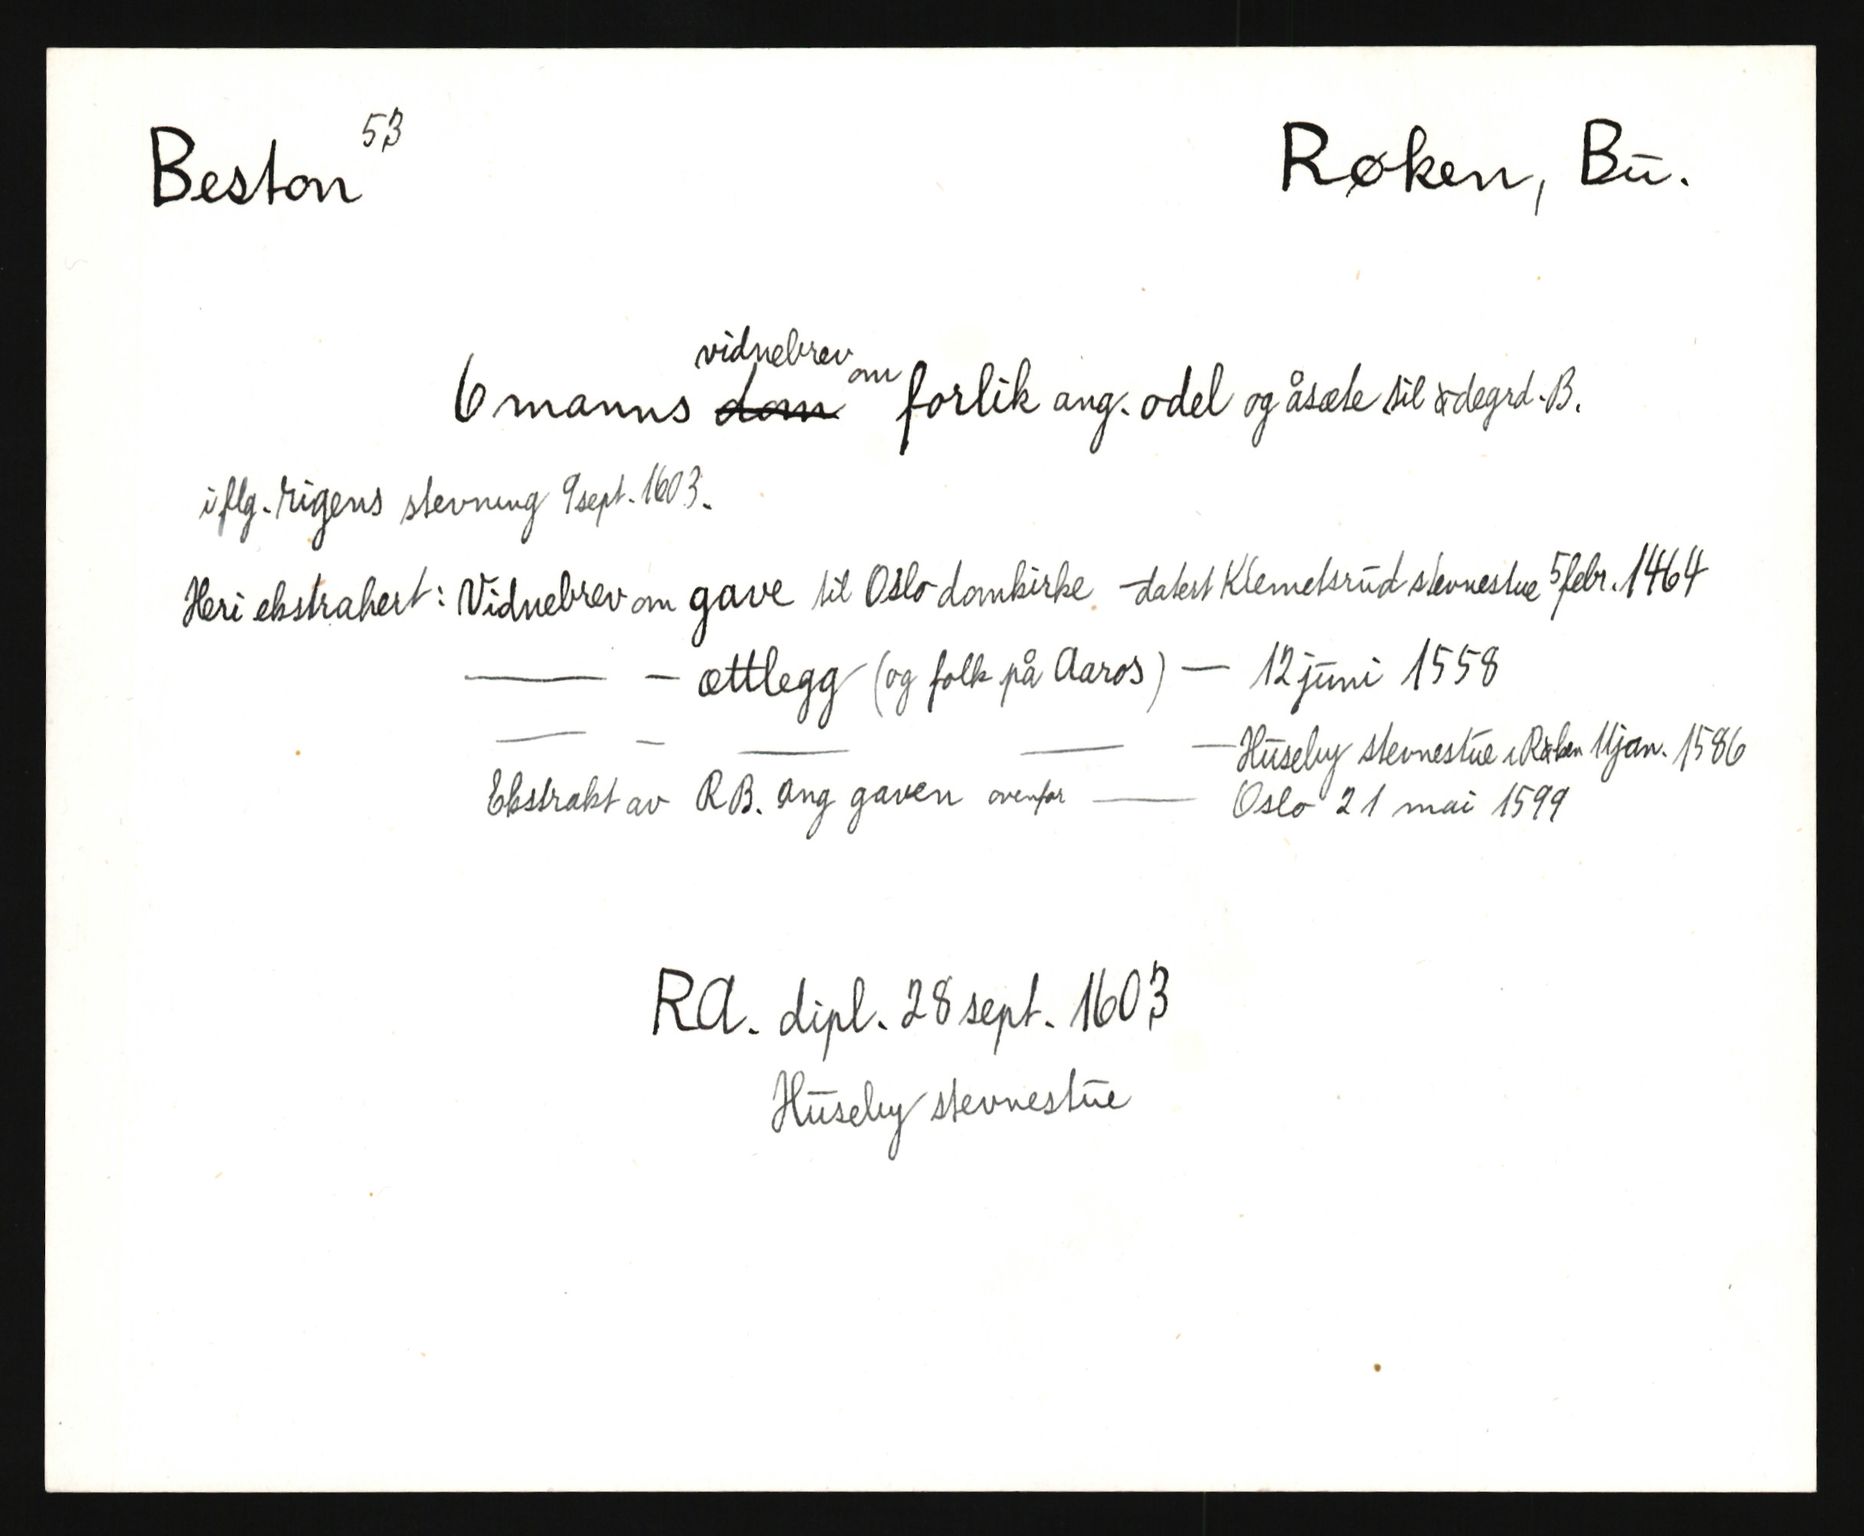 Beston 53 Røken, Bu.
vidnebrev om
6 manns dom forlik ang. odel og åsæte til ødegrd. B.
iflg. rigens stevning 9 sept. 1603.
Heri ekstrahert: Vidnebrev om gave til Oslo domkirke - datert Klemetsrud stevnestue 5 febr. 1464
—— — ættlegg (og folk på Aaros) — 12 juni 1558
—— — —— —— — Huseby stevnestue i Røken 11 jan. 1586
Ekstrakt av RB. ang gaven ovenfor —— Oslo 21 mai 1599
RA. dipl. 28 sept. 1603
Huseby stevnestue